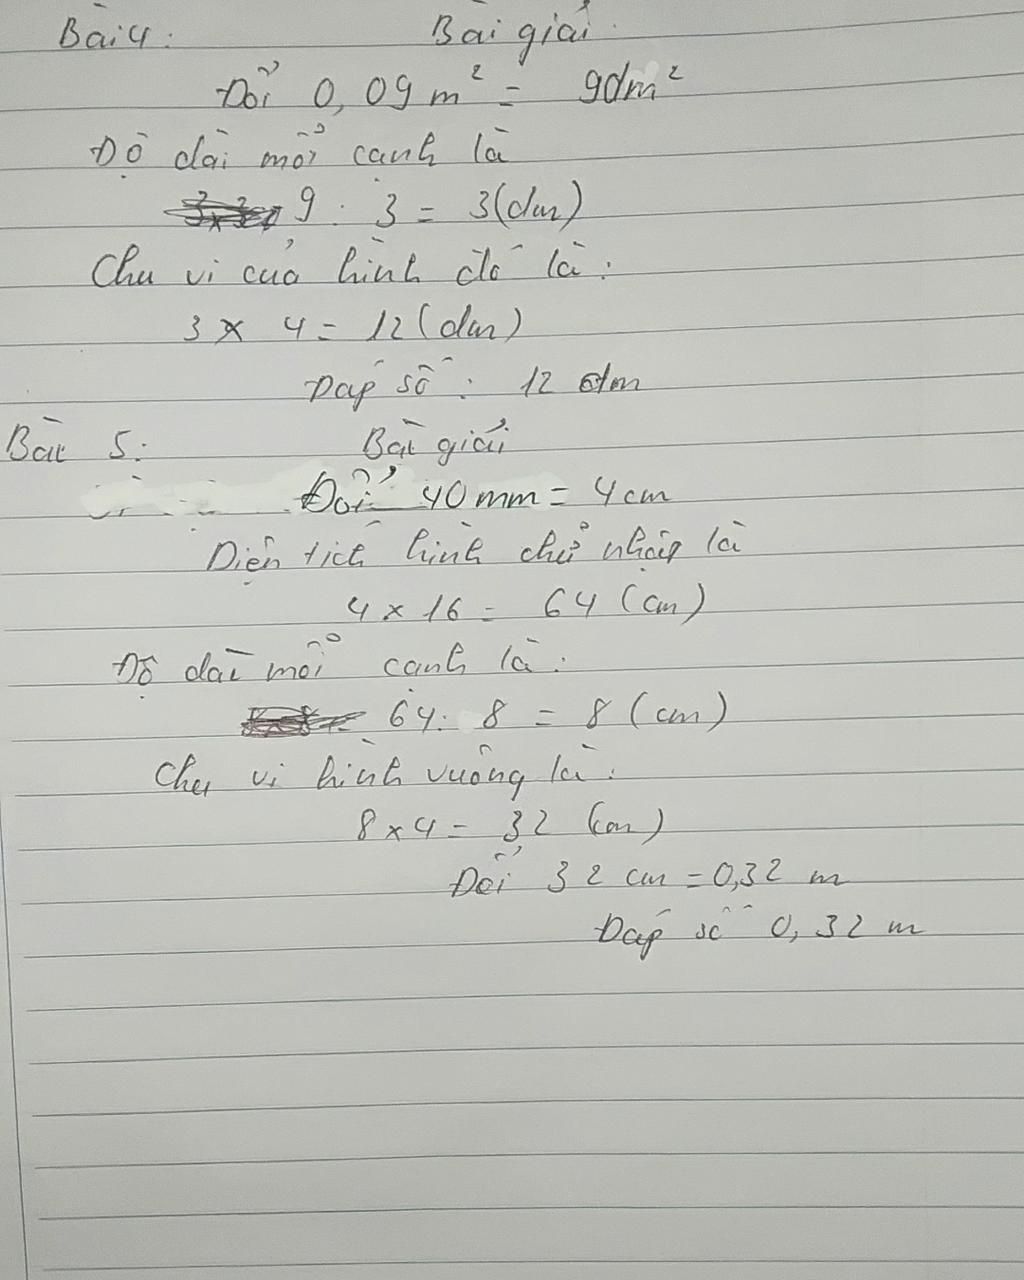 Bài 4: Bài giải
Đổi 0,09 m² = 9dm²
Độ dài mỗi cạnh là
9 : 3 = 3(dm)
Chu vi của hình đó là :
3 x 4 = 12 (dm)
Đáp số : 12 dm
Bài 5: Bài giải
Đổi 40mm = 4 cm
Diện tích hình chữ nhật là
4 x 16 = 64 (cm)
Độ dài mỗi cạnh là :
64 : 8 = 8 (cm)
Chu vi hình vuông là :
8 x 4 = 32 (cm)
Đổi 32 cm = 0,32 m
Đáp số 0,32 m